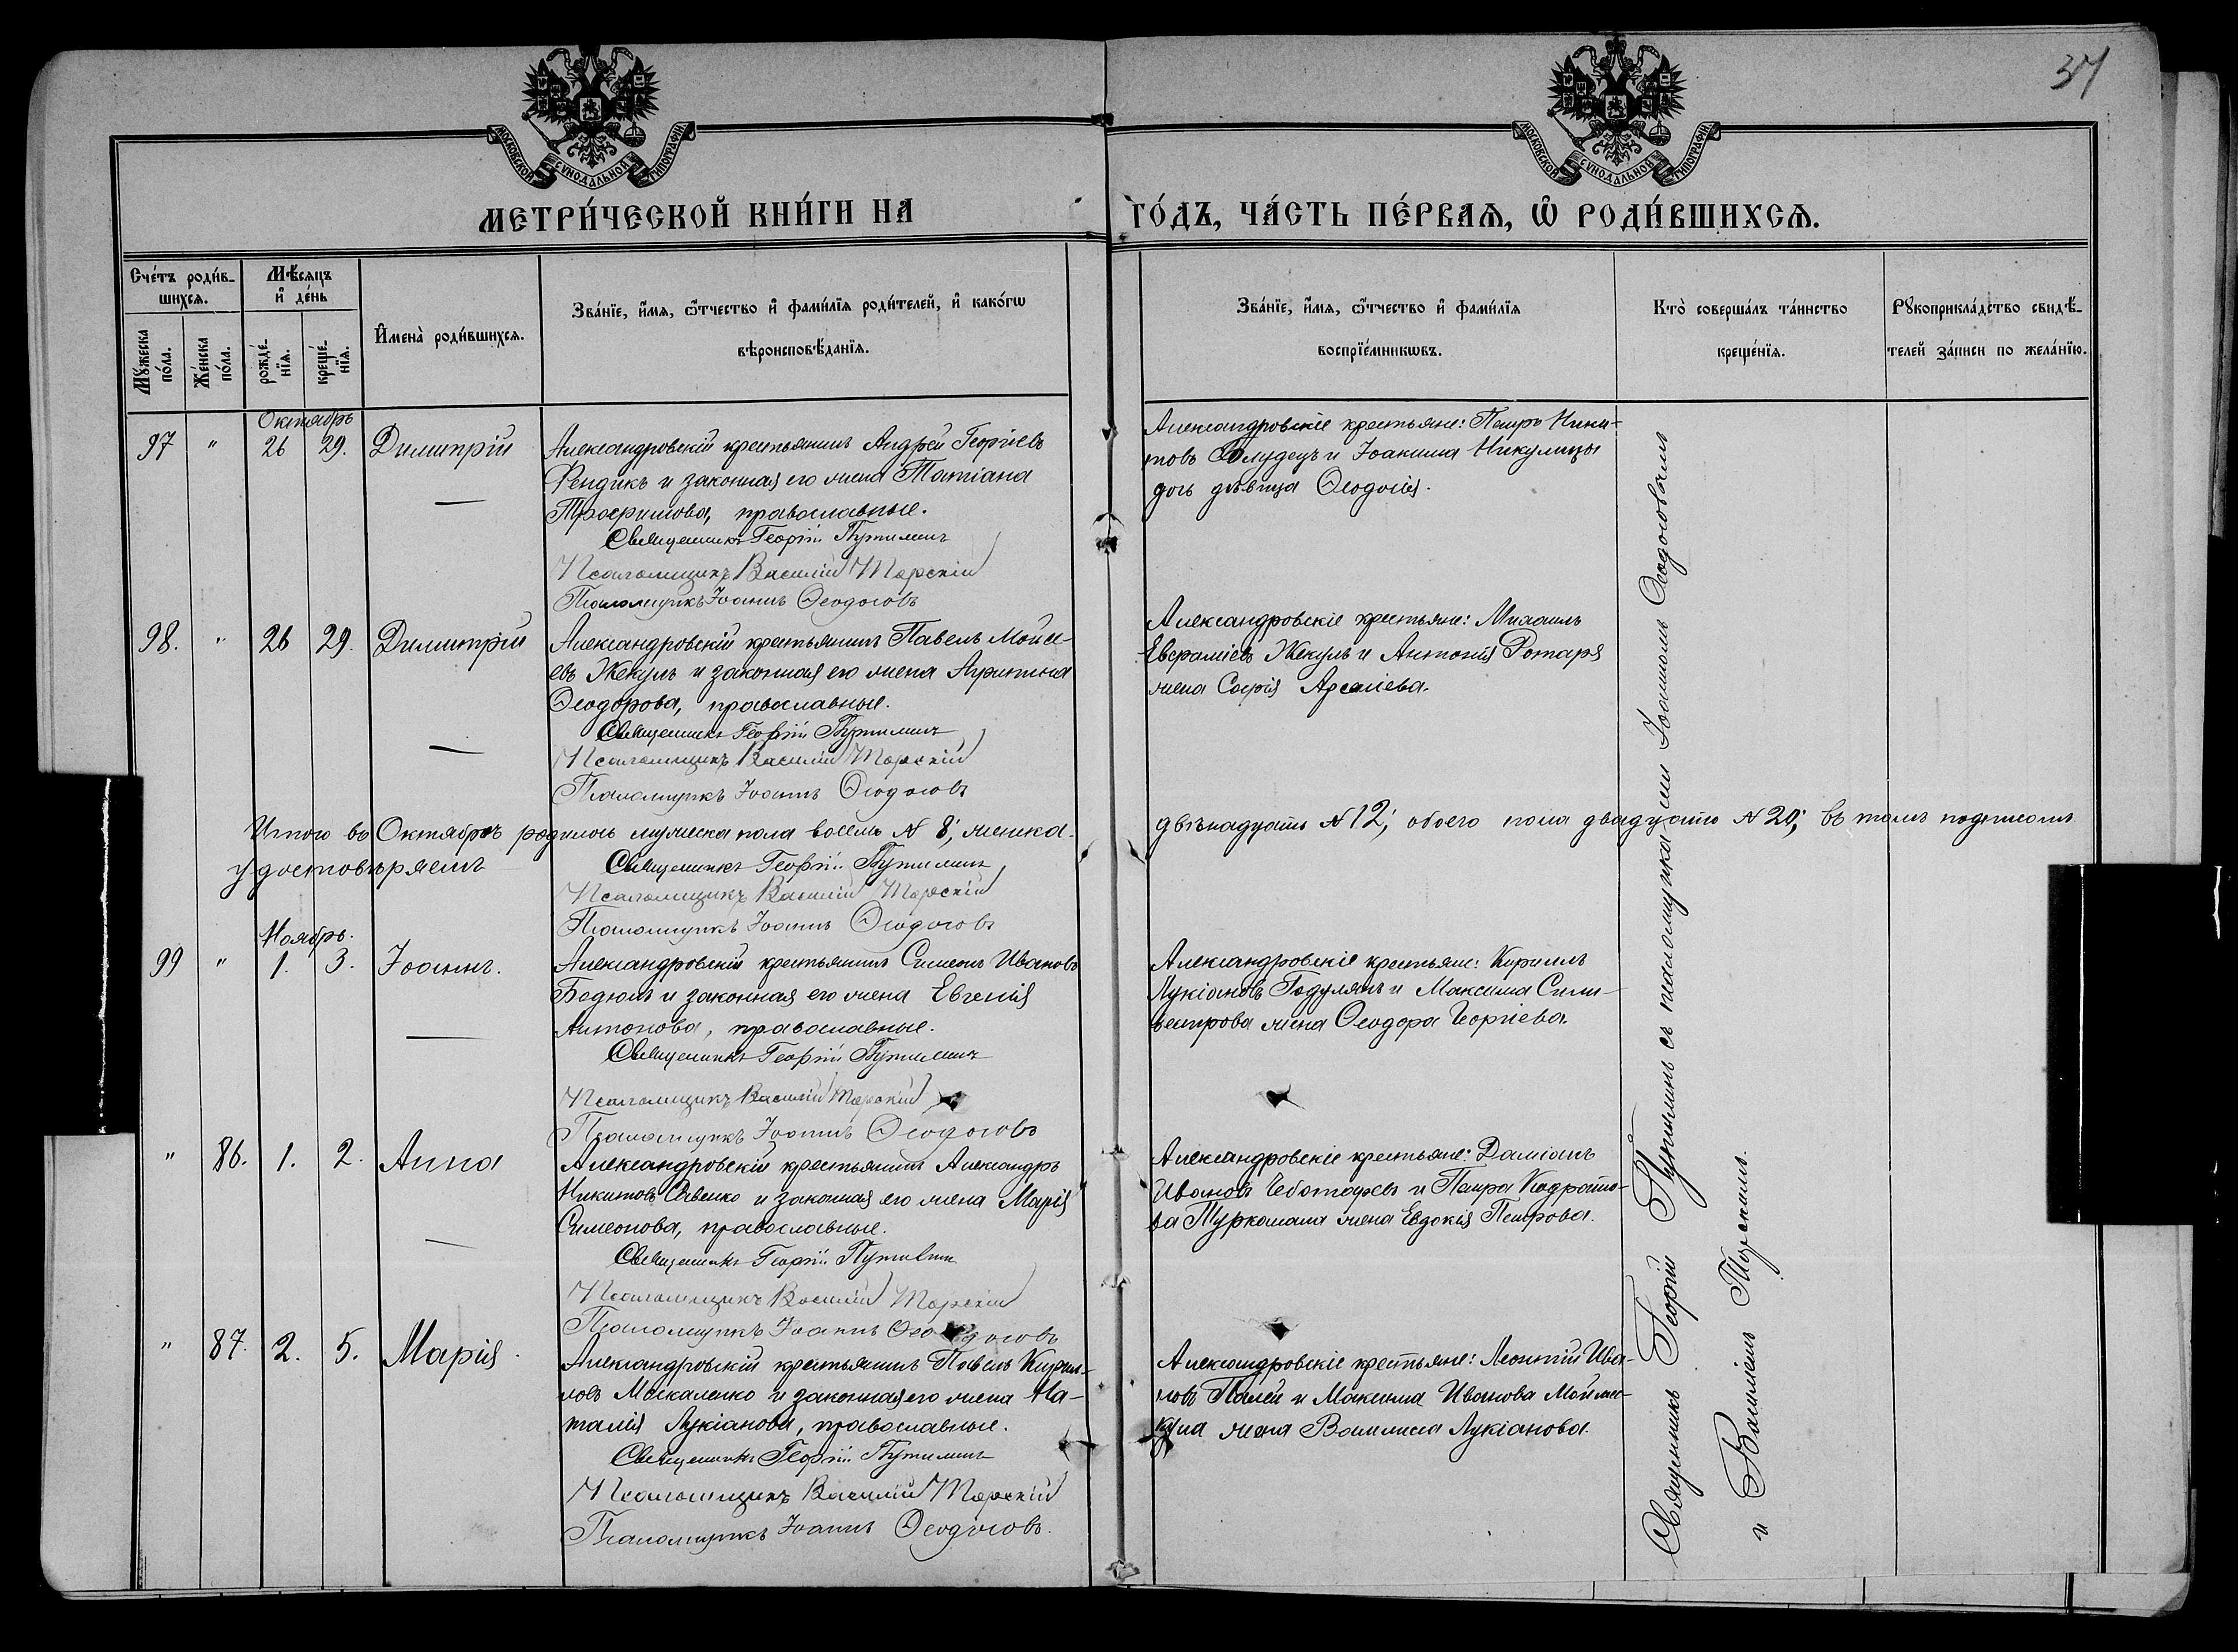 37
МОСКОВСКОЙ СѴНОДАЛЬНОЙ ТИПОГРАФІИ
МОСКОВСКОЙ СѴНОДАЛЬНОЙ ТИПОГРАФІИ
МЕТРИ́ЧЕСКОЙ КНИ́ГИ НА
ГО́ДЪ, ЧА́СТЬ ПЕ́РВАѦ, Ѡ҆ РОДИ́ВШИХСѦ.
Сче́тъ роди́в-
шихсѧ.
Мѣ́сѧцъ
и҆ де́нь
Мꙋ́жеска по́ла.
Же́нска по́ла.
рожде́-
нїѧ.
креще́-
нїѧ.
И҆мена̀ роди́вшихсѧ.
Зва́нїе, и҆́мѧ, ѻ҆́тчество и҆ фами́лїѧ роди́телей, и҆ како́гѡ
вѣроисповѣ́данїѧ.
Зва́нїе, и҆́мѧ, ѻ҆́тчество и҆ фами́лїѧ
воспрїе́мникѡвъ.
Кто̀ соверша́лъ та́инство
креще́нїѧ.
Рꙋкоприкла́дство свидѣ́-
телей за́писи по жела́нїю.
Октябрь
97 " 26 29. Димитрій
Александровскій крестьянинъ Андрей Георгіевъ
Фендикъ и законная его жена Татіана
Трофимова, православные.
Священникъ Георгій Путилинъ
Псаломщикъ Василій Торскій
Псаломщикъ Іоаннъ Ѳеодосовъ
Александровскіе крестьяне: Петръ Ники-
товъ Солудецъ и Іоакима Никулицы
дочь дѣвица Ѳеодосія.
98. " 26 29. Димитрій
Александровскій крестьянинъ Павелъ Мойсе-
евъ Жекулъ и законная его жена Ирина
Ѳеодорова, православные.
Священникъ Георгій Путилинъ
Псаломщикъ Василій Торскій
Псаломщикъ Іоаннъ Ѳеодосовъ
Александровскіе крестьяне: Михаилъ
Евфраміевъ Жекулъ и Антонія Ротаря
жена Софія Арсеніева.
Итого въ Октябрѣ родилось мужеска пола восемь № 8; женска
двѣнадцать № 12; обоего пола двадцать № 20; въ томъ подписомъ
удостовѣряемъ
Священникъ Георгій Путилинъ
Псаломщикъ Василій Торскій
Псаломщикъ Іоаннъ Ѳеодосовъ
Ноябрь.
99 " 1. 3. Іоаннъ.
Александровскій крестьянинъ Симеонъ Ивановъ
Бодюлъ и законная его жена Евгенія
Антонова, православные.
Священникъ Георгій Путилинъ
Псаломщикъ Василій Торскій
Псаломщикъ Іоаннъ Ѳеодосовъ
Александровскіе крестьяне: Кириллъ
Лукіановъ Годулянъ и Максима Силь-
вестрова жена Ѳеодора Георгіева.
" 86. 1. 2. Анна
Александровскій крестьянинъ Александръ
Никитовъ Савенко и законная его жена Марія
Симеонова, православные.
Священникъ Георгій Путилинъ
Псаломщикъ Василій Торскій
Псаломщикъ Іоаннъ Ѳеодосовъ
Александровскіе крестьяне: Даміанъ
Ивановъ Чеботаревъ и Петра Кодрато-
ва Туркамана жена Евдокія Петрова.
" 87. 2. 5. Марія.
Александровскій крестьянинъ Павелъ Кирил-
ловъ Москаленко и законная его жена На-
талія Лукіанова, православные.
Священникъ Георгій Путилинъ
Псаломщикъ Василій Торскій
Псаломщикъ Іоаннъ Ѳеодосовъ.
Александровскіе крестьяне: Леонтій Ива-
новъ Палій и Максима Иванова
жена Василиса Лукіанова.
Священникъ Георгій Путилинъ съ псаломщиками Іоанномъ Ѳеодосовымъ
и Василіемъ Торскимъ.